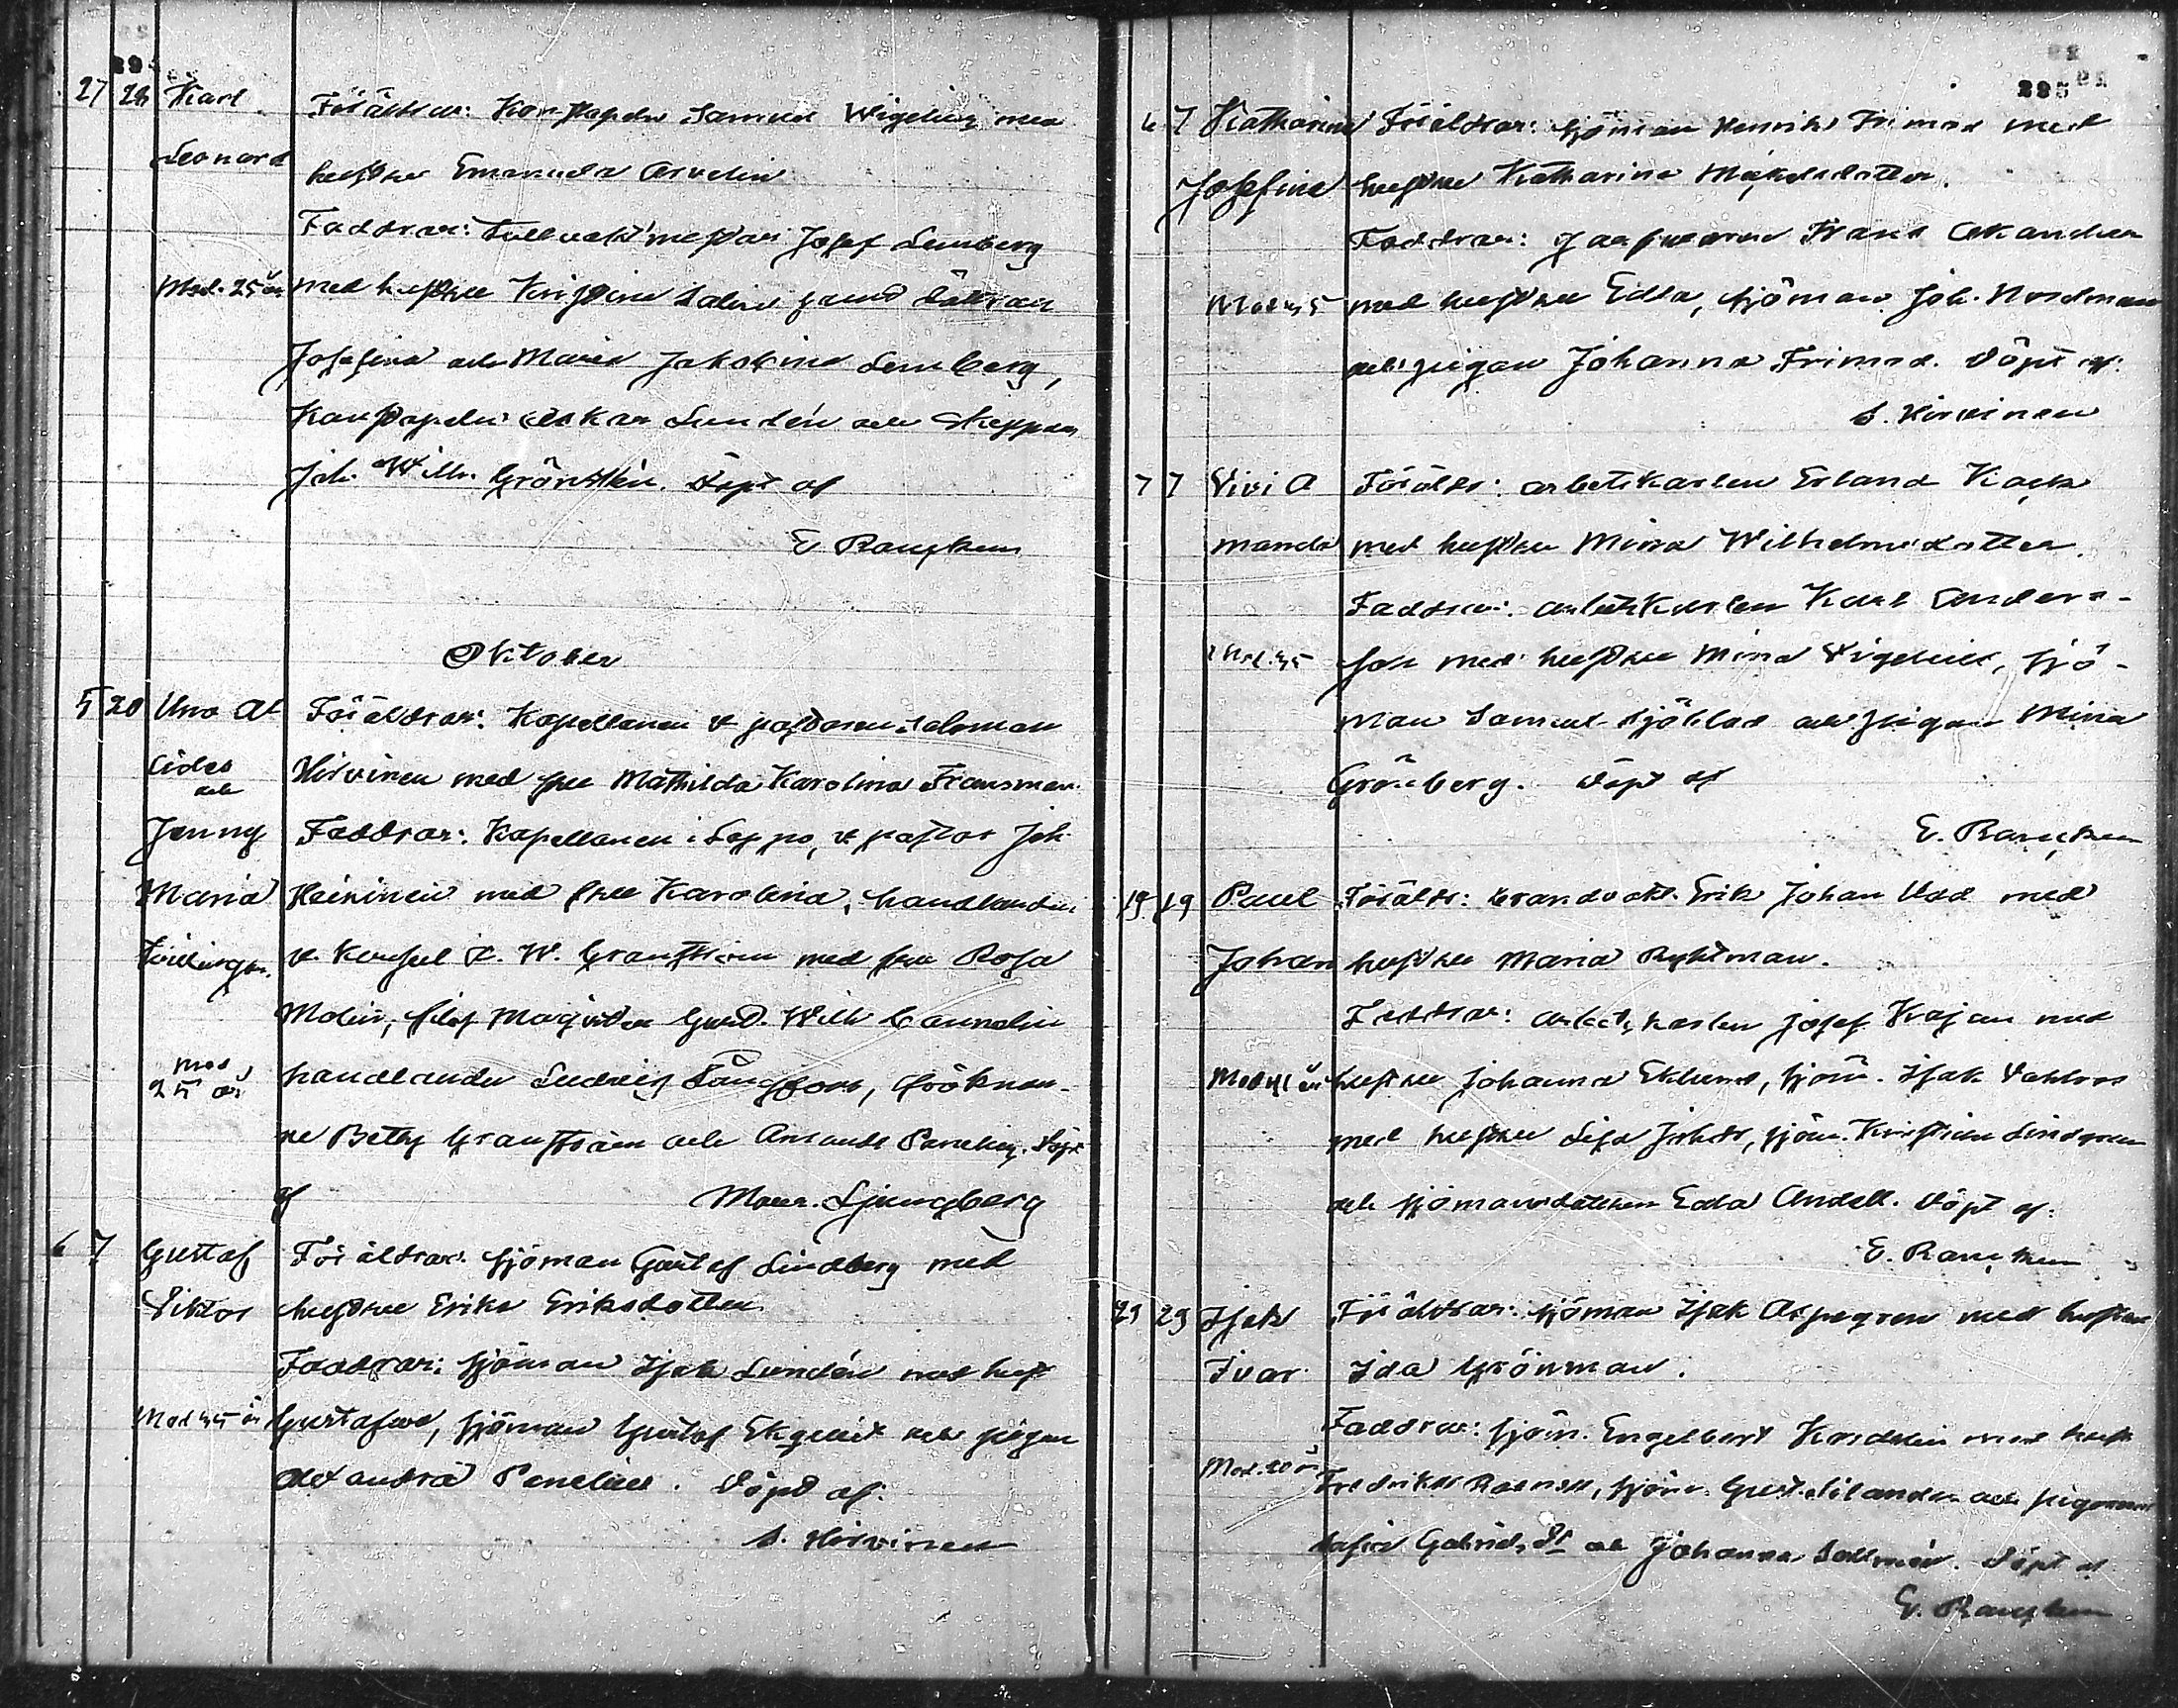 27 28 Karl Föräldrar: Konstapeln Samuel Wigelius med
Leonard hustru Emanuela Arvelin
Faddrar: Tullvaktmästar Josef Lemberg
Mod. 25 år med hustru Kristina Sabina samt döttrar
Josefina och Maria Jakobina Lemberg,
Konstapeln Oskar Lundén och Skeppar
Joh. Wilh. Grönstén. Döpt af
E Rancken
Oktober
5 20 Uno Al Föräldrar: Kapellanen v pastoren Salomon
cides Hirvinen med fru Mathilda Karolina Fransman.
och
Jenny Faddrar: Kapellanen i Seppo, v pastor Joh
Maria Heikinen med fru Karolina, handlanden
Tvillingar. v. Konsul K. W. Granström med fru Rosa
Molin, filos Magister Gust. Wilh
Mod 25 år handlanden Ludvig Långfors, fröknar-
ne Betty Granström och Amanda Penelius. Döpt
af Maur. Ljungberg
6 7 Gustaf Föräldrar: sjöman Gustaf Lindberg med
Viktor hustru Erika Eriksdotter
Faddrar: sjöman Isak Lundén med hust
Mod 35 år Gustafva, sjöman Gustaf Ekqvist och pigan
Alexandra Penelius. Döpt af:
S. Hirvinen
295
6 7 Katharina Föräldrar: sjöman Henrik Frimod med
Josefina hustru Katharina Mickelsdotter.
Faddrar: Gästgifvaren Frans Akander
Mod 35 med hustru Edla, sjöman Joh. Nordman
och pigan Johanna Frimod. Döpt af:
S. Hirvinen
7 7 Vivi A Föräldr: arbetskarlen Erland Kack
manda med hustru Mina Wilhelmsdotter.
Faddrar: arbetskarlen Karl Anders-
Mod. 35 son med hustru Mina Wigelius, sjö-
man Samuel Sjöblad och pigan Mina
Grönberg. Döpt af
E. Rancken
19 19 Paul Föräldr: brandvakt. Erik Johan Udd med
Johan hustru Maria Ryktman.
Faddrar: arbetskarlen Josef Krajan med
Mod 41 år hustru Johanna Eklund, sjöm. Isak Dahlros
med hustru Lisa Johdr, sjöm. Kristian Lindgren
och sjömansdottern Edla Andell. Döpt af:
E. Rancken
23 29 Isak Föräldrar: sjöman Isak Aspegren med hustru
Ivar Ida Grönman.
Faddrar: sjöm. Engelbert Kordelin med hust
Mod. 20 år Fredrika, sjöm. Gust. Silander och pigorna
Sofia Gabrielsdt och Johanna Sallmén. Döpt af
E. Rancken